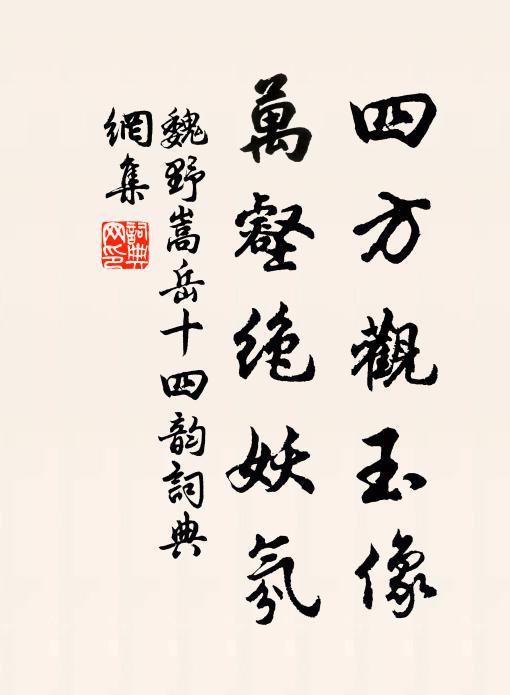 四方觀玉像
萬壑絶妖氛
魏野嵩岳十四韵詞典
網集
詞典
网印